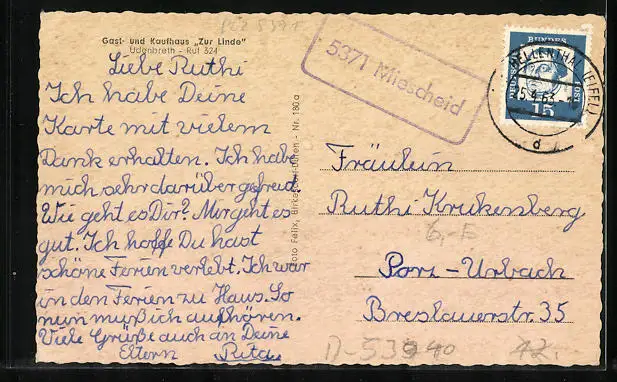 PLZ 5371
Gast- und Kaufhaus „Zur Linde"
Udenbreth - Ruf 324
Liebe Ruthi
Ich habe Deine
Karte mit vielem
Dank erhalten. Ich habe
mich sehr darüber gefreut.
Wie geht es Dir? Mir geht es
gut. Ich hoffe Du hast
schöne Ferien verlebt. Ich war
in den Ferien zu Haus. So
nun muß ich aufhören.
Viele Grüße auch an Deine
Eltern Rita
Foto Felix, Birkesdorf-Düren - Nr. 180a
5371 Miescheid
DEUTSCHE BUNDESPOST
15
SCHELLENTHAL (EIFEL)
Fräulein
Ruthi Krukenberg
6,-E
Porz-Urbach
Breslauerstr. 35
D-53940
12.-